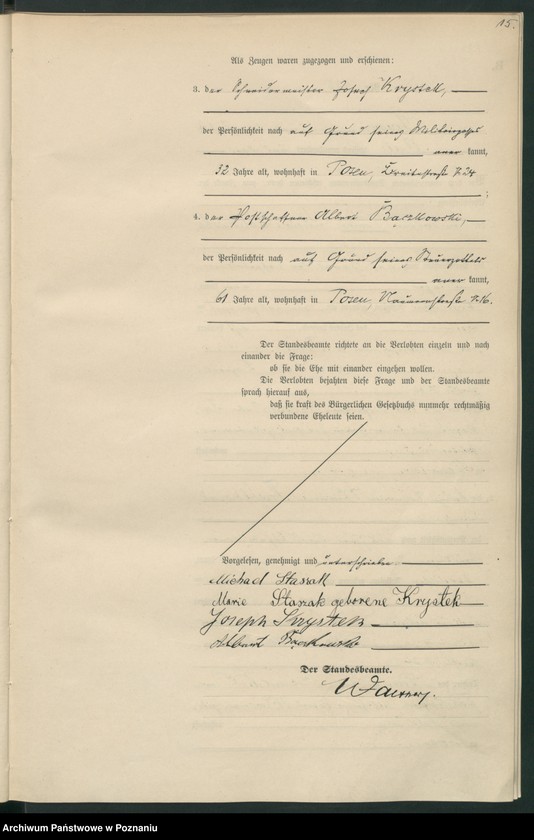 15.
Als Zeugen waren zugezogen und erschienen:
3. der Schneidermeister Josef Krystek,
der Persönlichkeit nach auf Grund seines Militärpasses
aner kannt,
32 Jahre alt, wohnhaft in Posen, Breitestraße № 24
;
4. der Postschaffner Albert Bączkowski,
der Persönlichkeit nach auf Grund seines Steuerzettels
aner kannt,
61 Jahre alt, wohnhaft in Posen, Naumannstraße № 16.
Der Standesbeamte richtete an die Verlobten einzeln und nach
einander die Frage:
ob sie die Ehe mit einander eingehen wollen.
Die Verlobten bejahten diese Frage und der Standesbeamte
sprach hierauf aus,
daß sie kraft des Bürgerlichen Gesetzbuchs nunmehr rechtmäßig
verbundene Eheleute seien.
Vorgelesen, genehmigt und unterschrieben
Michael Staszak
Marie Staszak geborene Krystek
Joseph Krystek
Albert Bączkowski
Der Standesbeamte.
Archiwum Państwowe w Poznaniu